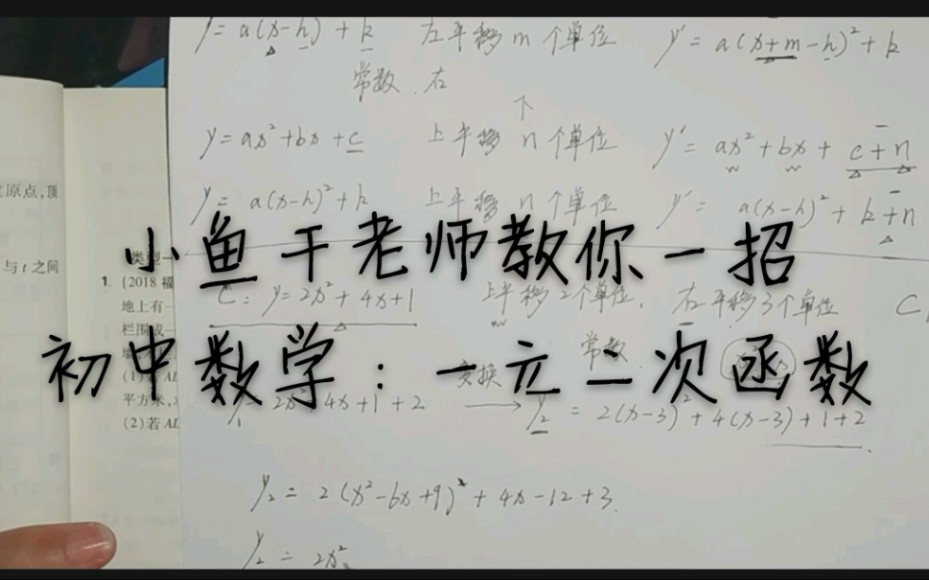 y = a(x-h) + k 左平移 m 个单位 y' = a(x+m-h)² + k
常数. 右
下
y = ax² + bx + c 上平移 n 个单位 y' = ax² + bx + c + n
y = a(x-h)² + k 上平移 n 个单位 y' = a(x-h)² + k + n
小鱼干老师教你一招
C: y = 2x² + 4x + 1 上平移2个单位. 右平移3个单位 C
常数
初中数学：一元二次函数
变换
4x + 1 + 2 → y₂ = 2(x-3)² + 4(x-3) + 1 + 2
y₂ = 2(x²-6x+9)² + 4x - 12 + 3.
y₂ = 2x²
原点,顶
与 t 之间
类型一
1. (2018 福
地上有一
栏围成一
(1)
平方米,
(2)若 AD